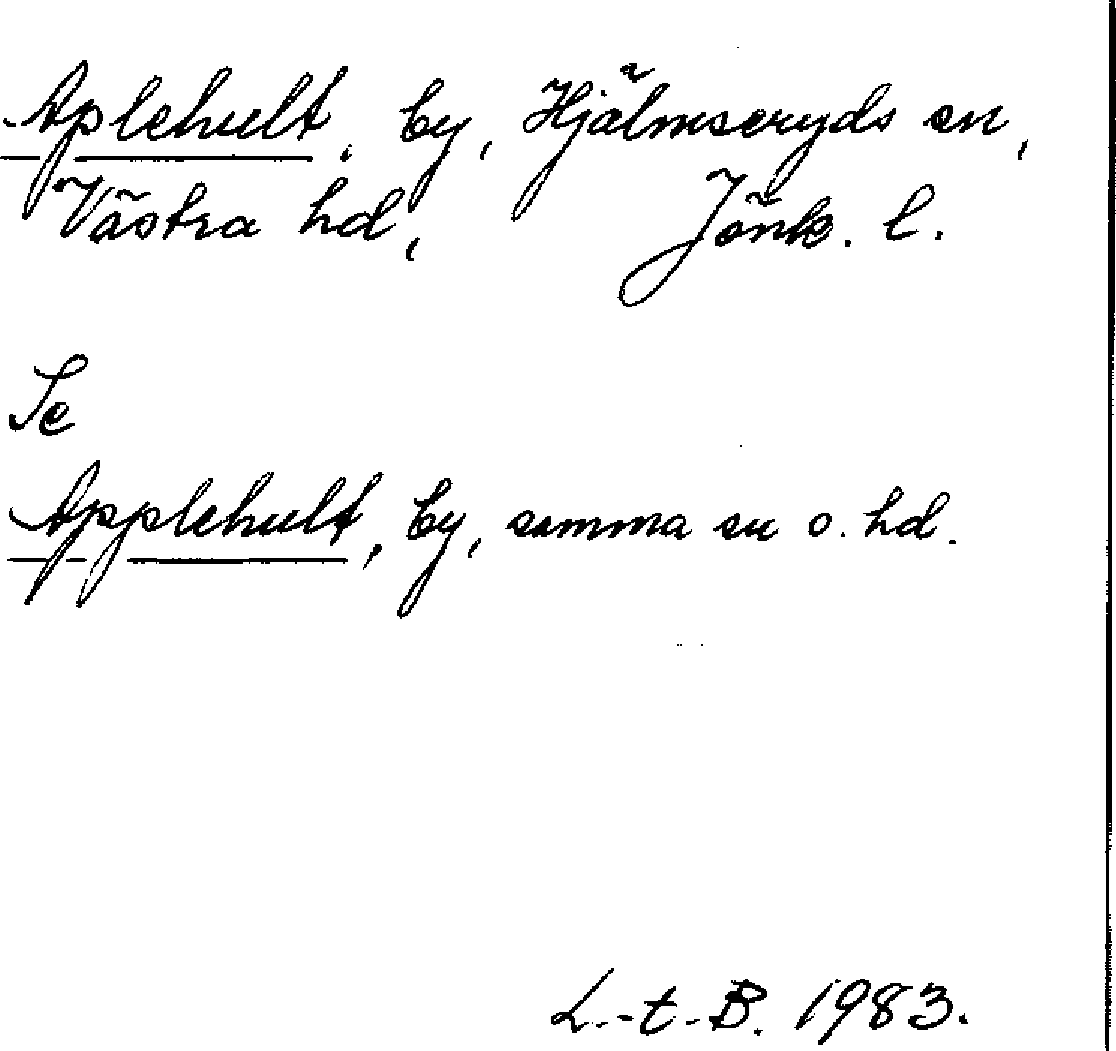 Aplehult, by, Hjälmseryds sn,
Västra hd, Jönk. l.
Se
Applehult, by, samma sn o. hd.
L.-t.-B. 1983.